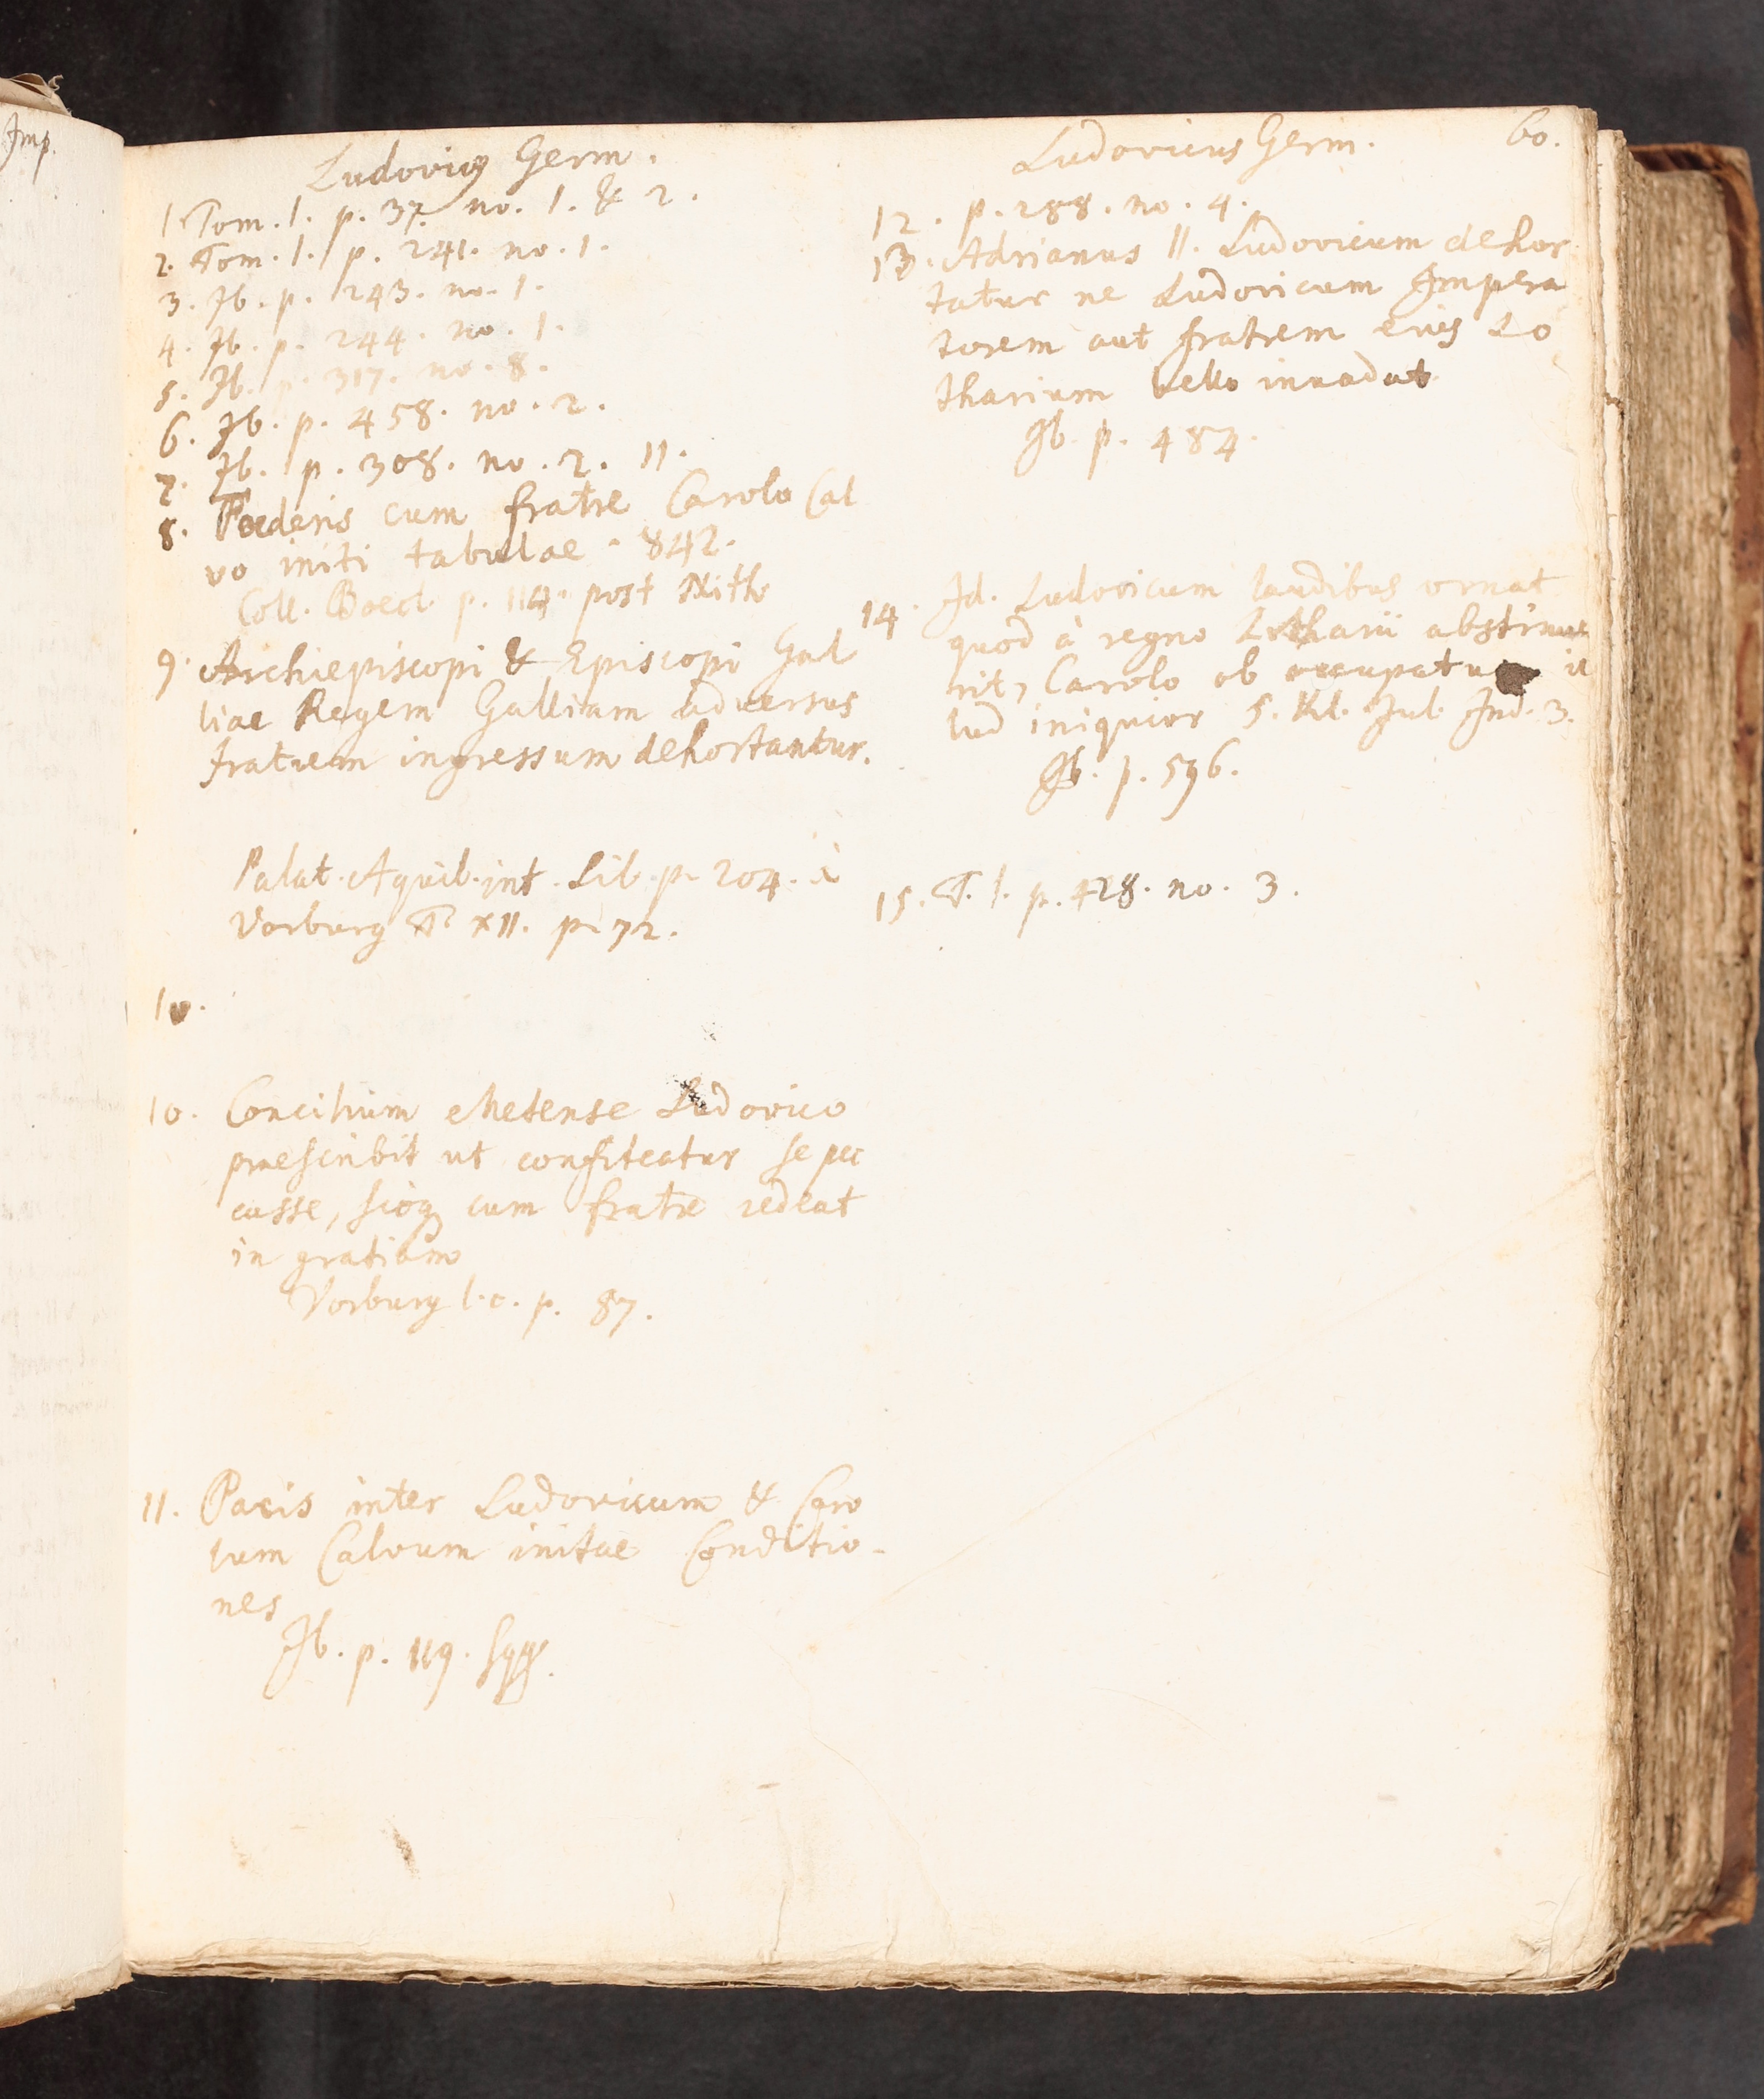 Imp.
Ludovicus Germ.
1. Tom. 1. p. 37. no. 1. & 2.
2. Tom. 1. p. 241. no. 1.
3. Ib. p. 243. no. 1.
4. Ib. p. 244. no. 1.
5. Ib. p. 317. no. 8.
6. Ib. p. 458. no. 2.
7. Ib. p. 308. no. 2. 11.
8. Foederis cum fratre Carolo Cal
vo initi tabulae. 842.
Coll. Boecl. p. 114. post Nith
9. Archiepiscopi & Episcopi Gal
liae Regem Galliam adversus
fratrem ingressum dehortantur.
Palat. Aquil. int. Lib. p. 204. à
Vorburg T. XII. p. 72.
10.
10. Concilium Metense Ludovico
praescribit ut confiteatur se pec
casse, sicq cum fratre redeat
in gratiam
Vorburg l. c. p. 87.
11. Pacis inter Ludovicum & Caro
lum Calvum initae Conditio-
nes
Ib. p. 119. sqq.
Ludovicus Germ.
60.
12. p. 288. no. 4.
13. Adrianus II. Ludovicum dehor
tatur ne Ludovicum Impera
torem aut fratrem eius Lo
tharium bello invadat
Ib. p. 484.
14. Id. Ludovicum laudibus ornat
quod à regno Lotharii abstinue
rit, Carolo ob occupatu il
lud iniquior 5. Kl. Jul. Ind. 3.
Ib. p. 596.
15. T. 1. p. 428. no. 3.